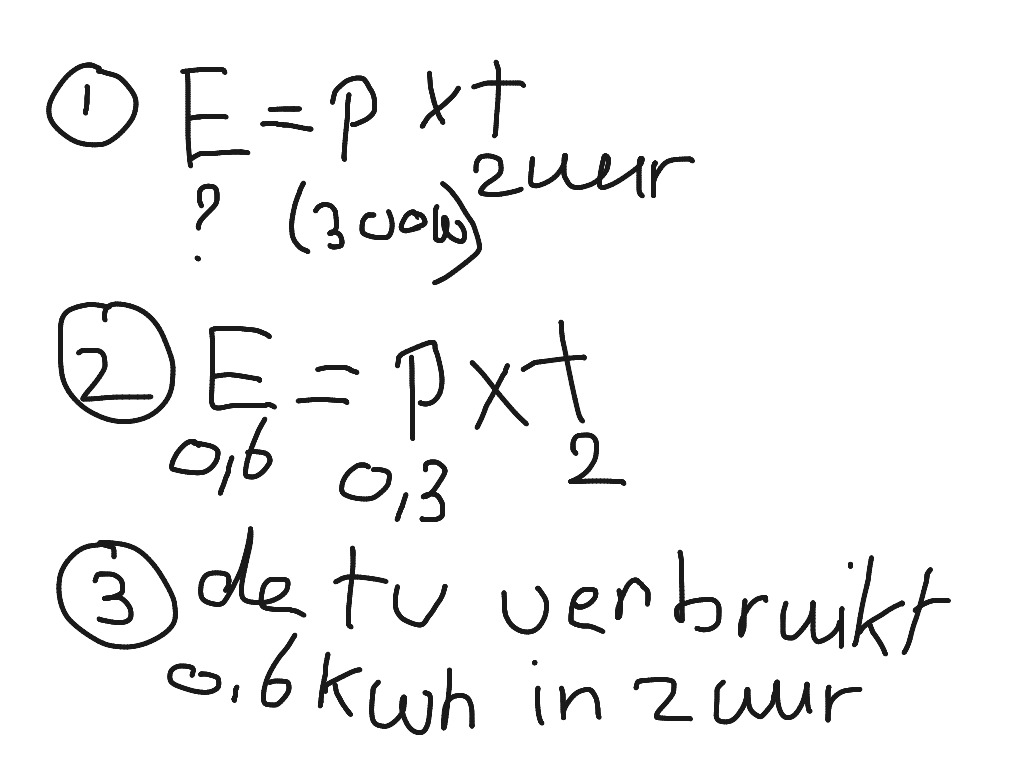 ① E = p x t
? (300w) 2 uur
② E = p x t
0,6 0,3 2
③ de tv verbruikt
0,6 kwh in 2 uur